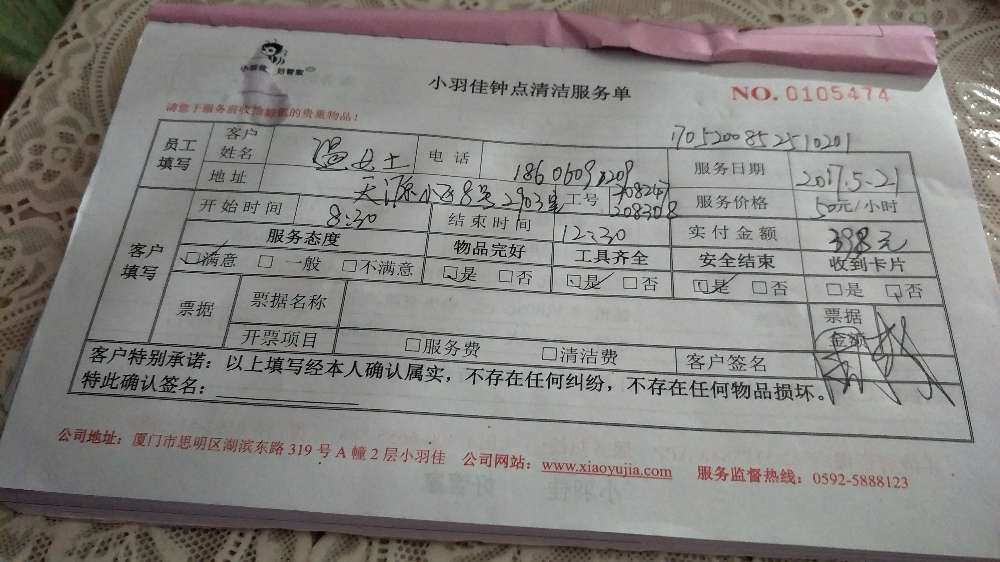 小羽佳 好管家
小羽佳钟点清洁服务单
NO. 0105474
请您于服务前收拾好您的贵重物品！
1705200852510201
员工填写 客户姓名 温女士 电话 服务日期 2017.5-21
地址 8号2903 工号 208247 208308 服务价格 50元/小时
客户填写 开始时间 8:30 结束时间 12:30 实付金额 398元
服务态度 物品完好 工具齐全 安全结束 收到卡片
☑满意 □一般 □不满意 ☑是 □否 ☑是 □否 ☑是 □否 □是 ☑否
票据 票据名称 票据金额
开票项目 □服务费 □清洁费 客户签名
客户特别承诺：以上填写经本人确认属实，不存在任何纠纷，不存在任何物品损坏。
特此确认签名：
公司地址：厦门市思明区湖滨东路 319 号 A 幢 2 层小羽佳 公司网站：www.xiaoyujia.com 服务监督热线：0592-5888123